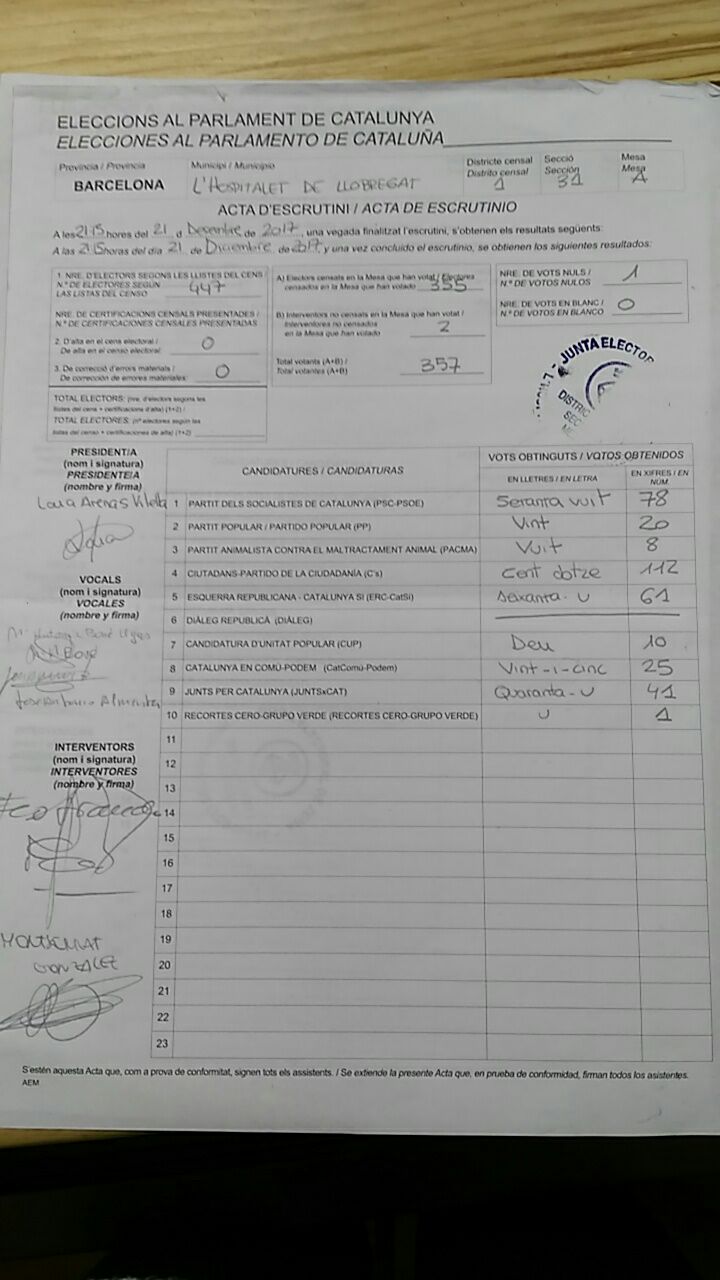 ELECCIONS AL PARLAMENT DE CATALUNYA
ELECCIONES AL PARLAMENTO DE CATALUÑA
Província / Provincia
BARCELONA
Municipi / Municipio
L'HOSPITALET DE LLOBREGAT
Districte censal
Distrito censal
1
Secció
Sección
31
Mesa
Mesa
A
ACTA D'ESCRUTINI / ACTA DE ESCRUTINIO
A les 21:15 hores del 21 d Desembre de 2017, una vegada finalitzat l'escrutini, s'obtenen els resultats següents:
A las 21:15 horas del día 21 de Diciembre de 2017, y una vez concluido el escrutinio, se obtienen los siguientes resultados:
1. NRE. D'ELECTORS SEGONS LES LLISTES DEL CENS
N.º DE ELECTORES SEGÚN
LAS LISTAS DEL CENSO 447
NRE. DE CERTIFICACIONS CENSALS PRESENTADES /
N.º DE CERTIFICACIONES CENSALES PRESENTADAS
2. D'alta en el cens electoral /
De alta en el censo electoral: 0
3. De correcció d'errors materials /
De corrección de errores materiales: 0
TOTAL ELECTORS: (nre. d'electors segons les
llistes del cens + certificacions d'alta) (1+2) /
TOTAL ELECTORES: (nº electores según las
listas del censo + certificaciones de alta) (1+2)
A) Electors censats en la Mesa que han votat / Electores
censados en la Mesa que han votado 355
B) Interventors no censats en la Mesa que han votat /
Interventores no censados
en la Mesa que han votado 2
Total votants (A+B) /
Total votantes (A+B) 357
NRE. DE VOTS NULS /
N.º DE VOTOS NULOS 1
NRE. DE VOTS EN BLANC /
N.º DE VOTOS EN BLANCO 0
JUNTA ELECTOR
DISTRIC
SEC
PRESIDENT/A
(nom i signatura)
PRESIDENTE/A
(nombre y firma)
VOCALS
(nom i signatura)
VOCALES
(nombre y firma)
INTERVENTORS
(nom i signatura)
INTERVENTORES
(nombre y firma)
MONTSERRAT
GONZALEZ
CANDIDATURES / CANDIDATURAS
VOTS OBTINGUTS / VOTOS OBTENIDOS
EN LLETRES / EN LETRA
EN XIFRES / EN NÚM.
1 PARTIT DELS SOCIALISTES DE CATALUNYA (PSC-PSOE) Setanta vuit 78
2 PARTIT POPULAR / PARTIDO POPULAR (PP) Vint 20
3 PARTIT ANIMALISTA CONTRA EL MALTRACTAMENT ANIMAL (PACMA) Vuit 8
4 CIUTADANS-PARTIDO DE LA CIUDADANÍA (C's) Cent dotze 112
5 ESQUERRA REPUBLICANA - CATALUNYA SÍ (ERC-CatSí) Seixanta-U 61
6 DIÀLEG REPUBLICÀ (DIÀLEG)
7 CANDIDATURA D'UNITAT POPULAR (CUP) Deu 10
8 CATALUNYA EN COMÚ-PODEM (CatComú-Podem) Vint-i-cinc 25
9 JUNTS PER CATALUNYA (JUNTSxCAT) Quaranta-U 41
10 RECORTES CERO-GRUPO VERDE (RECORTES CERO-GRUPO VERDE) U 1
11
12
13
14
15
16
17
18
19
20
21
22
23
S'estén aquesta Acta que, com a prova de conformitat, signen tots els assistents. / Se extiende la presente Acta que, en prueba de conformidad, firman todos los asistentes.
AEM